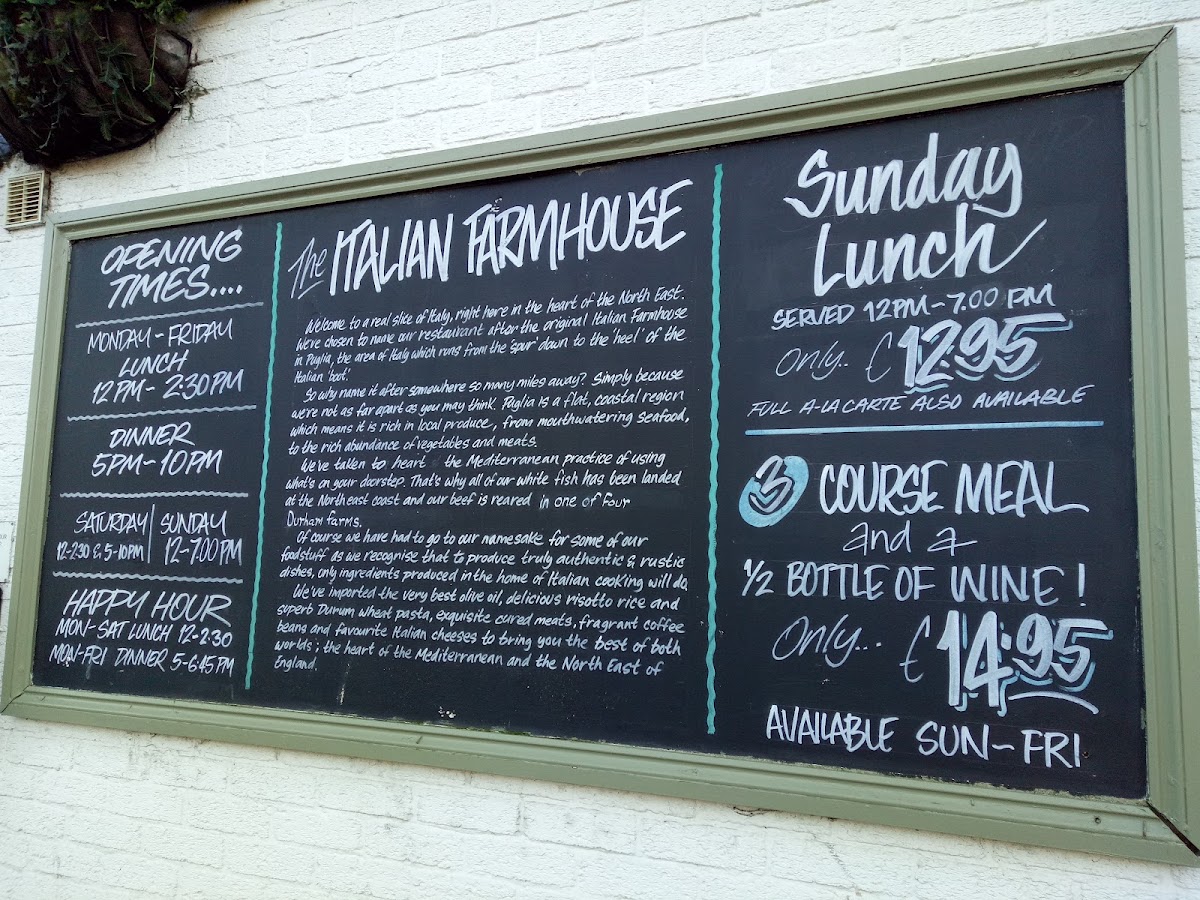 OPENING
TIMES....
MONDAY - FRIDAY
LUNCH
12PM - 2:30PM
DINNER
5PM - 10PM
SATURDAY
12-2:30 & 5-10PM
SUNDAY
12-7.00PM
HAPPY HOUR
MON-SAT LUNCH 12-2:30
MON-FRI DINNER 5-6:45PM
The ITALIAN FARMHOUSE
Welcome to a real slice of Italy, right here in the heart of the North East.
We've chosen to name our restaurant after the original Italian Farmhouse
in Puglia, the area of Italy which runs from the 'spur' down to the 'heel' of the
Italian 'boot'.
So why name it after somewhere so many miles away? Simply because
we're not as far apart as you may think. Puglia is a flat, coastal region
which means it is rich in local produce, from mouthwatering seafood,
to the rich abundance of vegetables and meats.
We've taken to heart the Mediterranean practice of using
what's on your doorstep. That's why all of our white fish has been landed
at the Northeast coast and our beef is reared in one of four
Durham farms.
Of course we have had to go to our namesake for some of our
foodstuff as we recognise that to produce truly authentic & rustic
dishes, only ingredients produced in the home of Italian cooking will do.
We've imported the very best olive oil, delicious risotto rice and
superb Durum wheat pasta, exquisite cured meats, fragrant coffee
beans and favourite Italian cheeses to bring you the best of both
worlds; the heart of the Mediterranean and the North East of
England.
Sunday
Lunch
SERVED 12PM - 7.00 PM
Only.. £12.95
FULL A-LA CARTE ALSO AVAILABLE
3 COURSE MEAL
and a
1/2 BOTTLE OF WINE!
Only... £14.95
AVAILABLE SUN-FRI